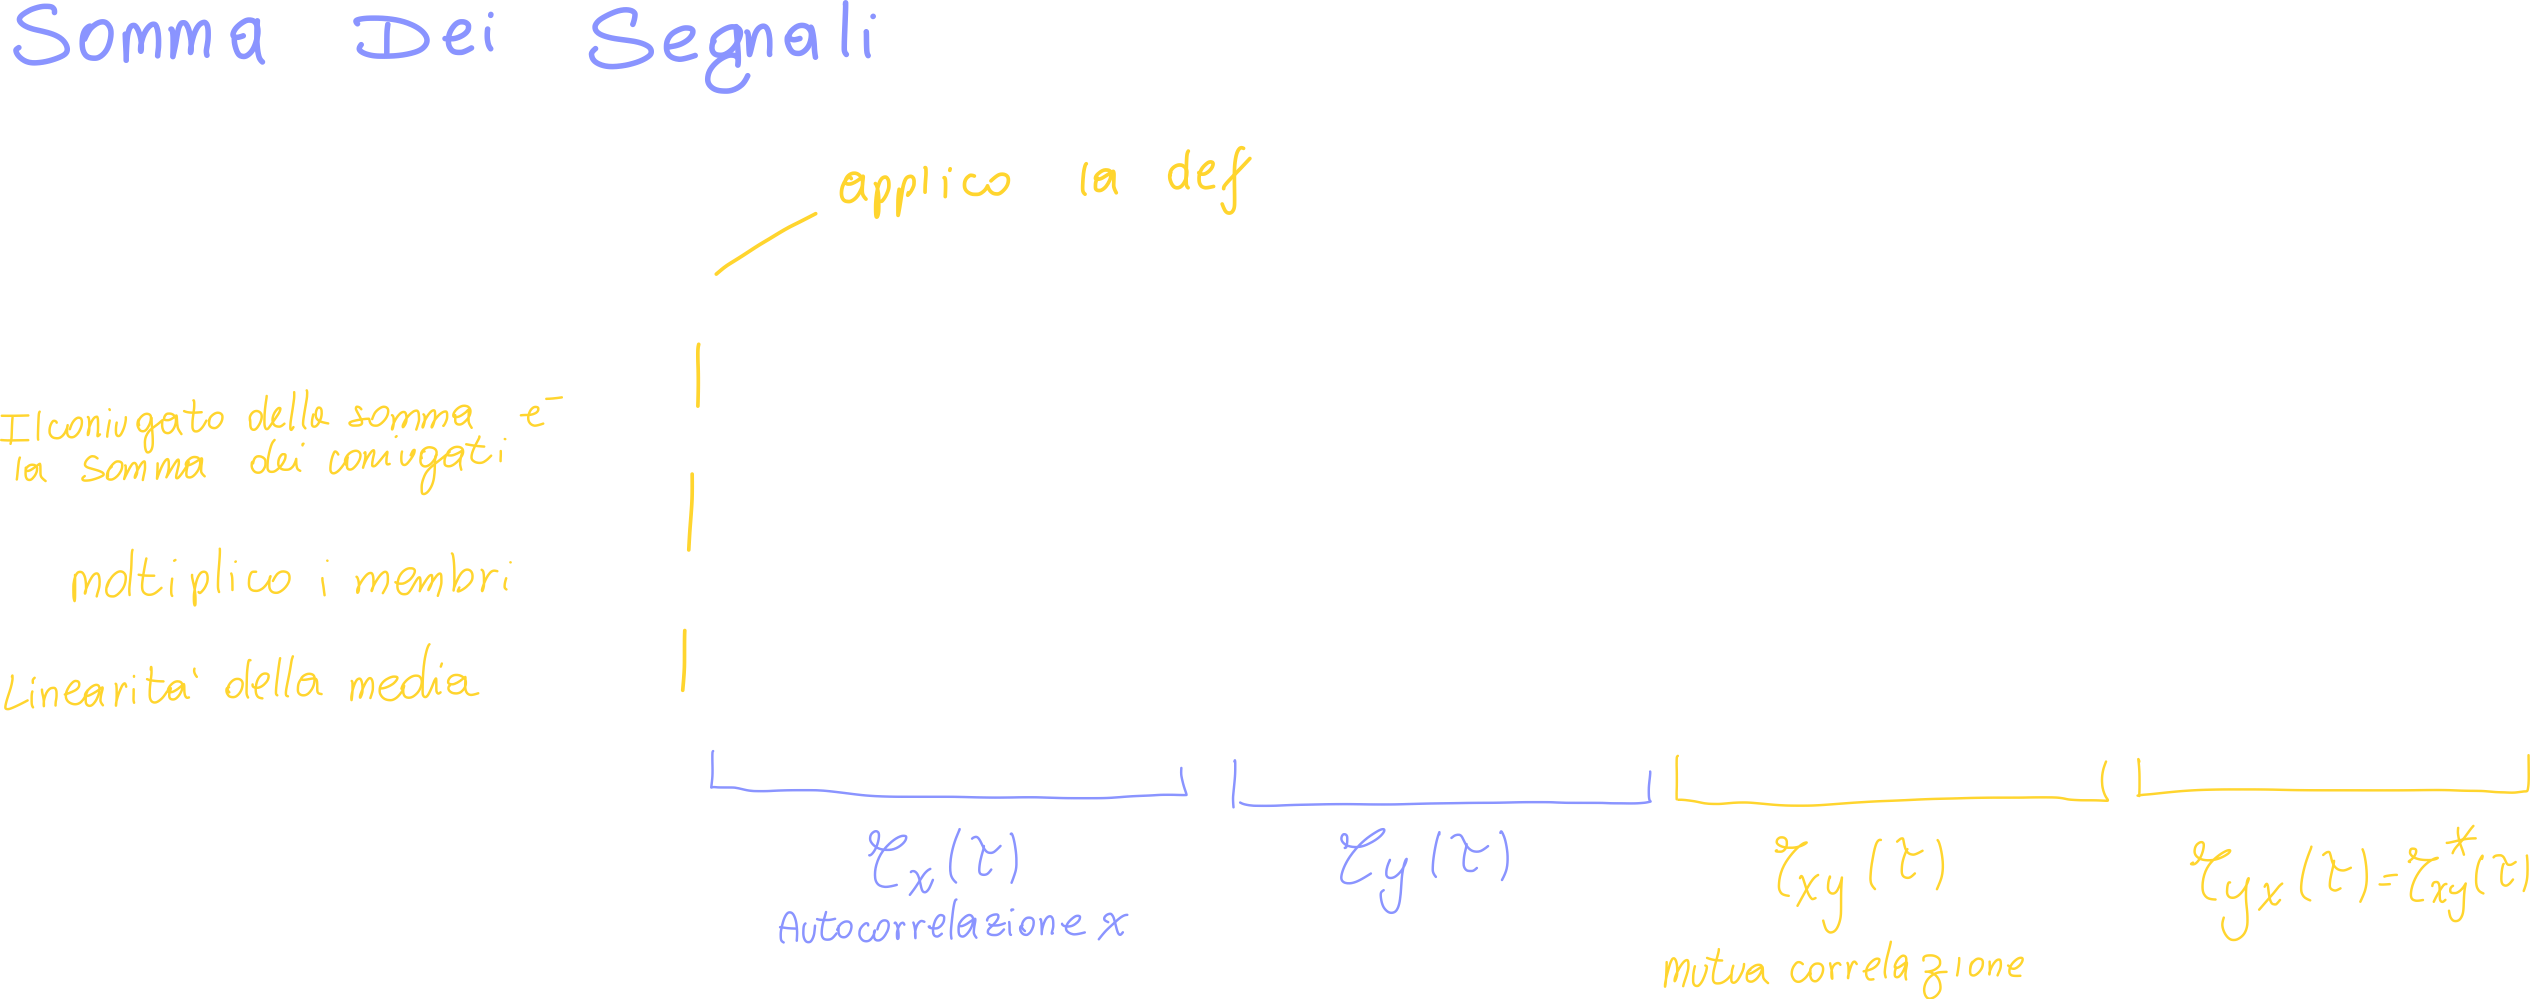 Somma Dei Segnali
applico la def
Il coniugato della somma e-
la somma dei coniugati
moltiplico i membri
Linearita' della media
τx(τ)
τy(τ)
τxy(τ)
τyx(τ)=τ*xy(τ)
Autocorrelazione x
mutua correlazione